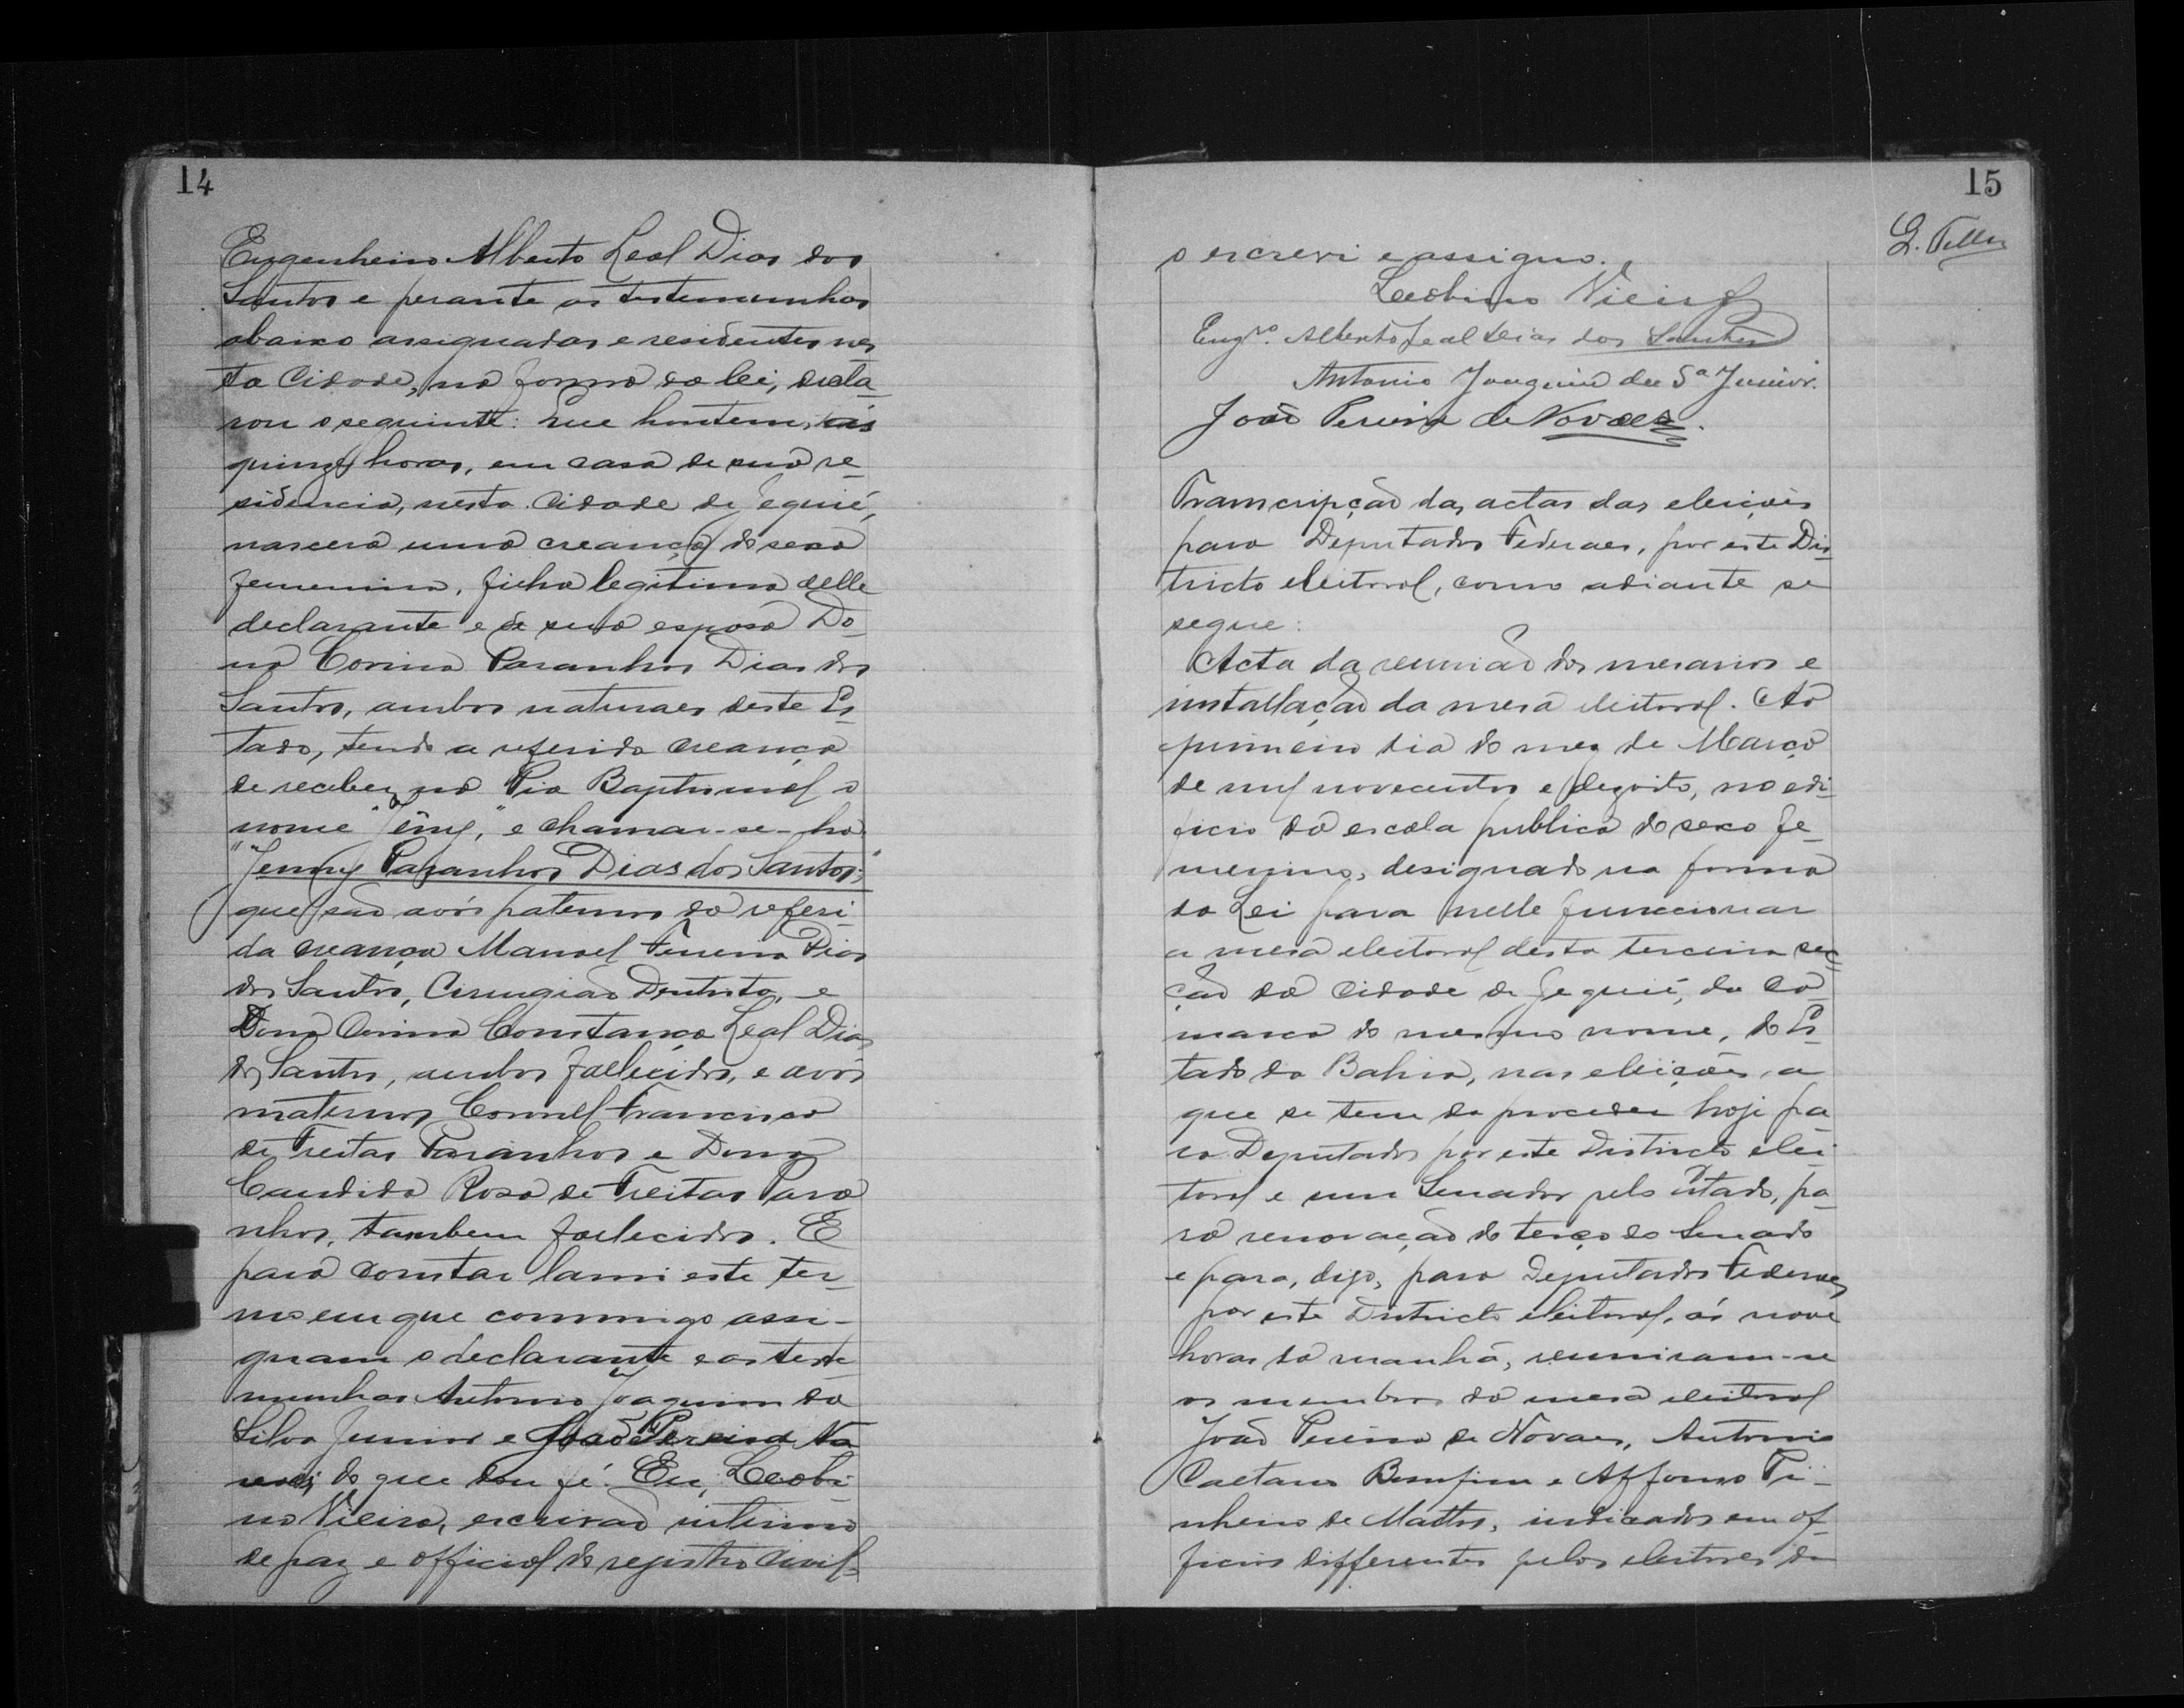 14
Engenheiro Alberto Leal Dias dos
Santos e perante as testemunhas
abaixo assignadas e residentes nes
ta Cidade, na forma da lei, decla-
rou o seguinte: Que hontem, ás
quinze horas, em casa de sua re-
sidencia, nesta Cidade de Jequié,
nascera uma creança do sexo
femenino, filha legitima delle
declarante e de sua esposa Do-
na Corina Paranhos Dias dos
Santos, ambos naturaes deste Es
tado, tendo a referida creança
de receber na Pia Baptismal o
nome "Jeny," e chamar-se-ha
"Jenny Paranhos Dias dos Santos;"
que são avós paternos da referi-
da creança Manoel Ferreira Dias
dos Santos, Cirurgião Dentista, e
Dona Constança Leal Dias
dos Santos, ambos fallecidos, e avós
maternos Coronel Francisco
de Freitas Paranhos e Dona
Candida Rosa de Freitas Para
nhos, tambem fallecidos. E
para constar lavrei este ter-
mo em que commigo assi-
gnam o declarante e as teste
munhas Antonio Joaquim da
Silva Junior e João Pereira No
vaes; do que dou fé. Eu, Leobi-
no Vieira, escrivão interino
de paz e official do registro civil-
15
o escrevi e assigno.
Leobino Vieira
Engro. Alberto Leal Dias dos Santos
Antonio Joaquim da Sa Junior.
João Pereira de Novaes.
Transcripção das actas das eleições
para Deputados Federaes, por este Dis-
tricto eleitoral, como adiante se
segue:
Acta da reunião dos mesarios e
installação da mesa eleitoral. Ao
primeiro dia do mez de Março
de mil novecentos e dezoito, no edi-
ficio da escola publica do sexo fe-
menino, designado na forma
da Lei para nelle funccionar
a mesa eleitoral desta terceira sec-
ção da Cidade de Jequié, da Co-
marca do mesmo nome, do Es-
tado da Bahia, nas eleições a
que se tem de proceder hoje pa
ra Deputados por este Districto elei-
toral e um Senador pelo Estado, pa-
ra renovação do terço do Senado
e para, digo, para Deputados Federaes
por este Districto eleitoral, ás nove
horas da manhã, reuniram-se
os membros da mesa eleitoral
João Pereira de Novaes, Antonio
Caetano Bomfim e Affonso Pi-
nheiro de Mattos, indicados em of-
ficios differentes pelos eleitores da